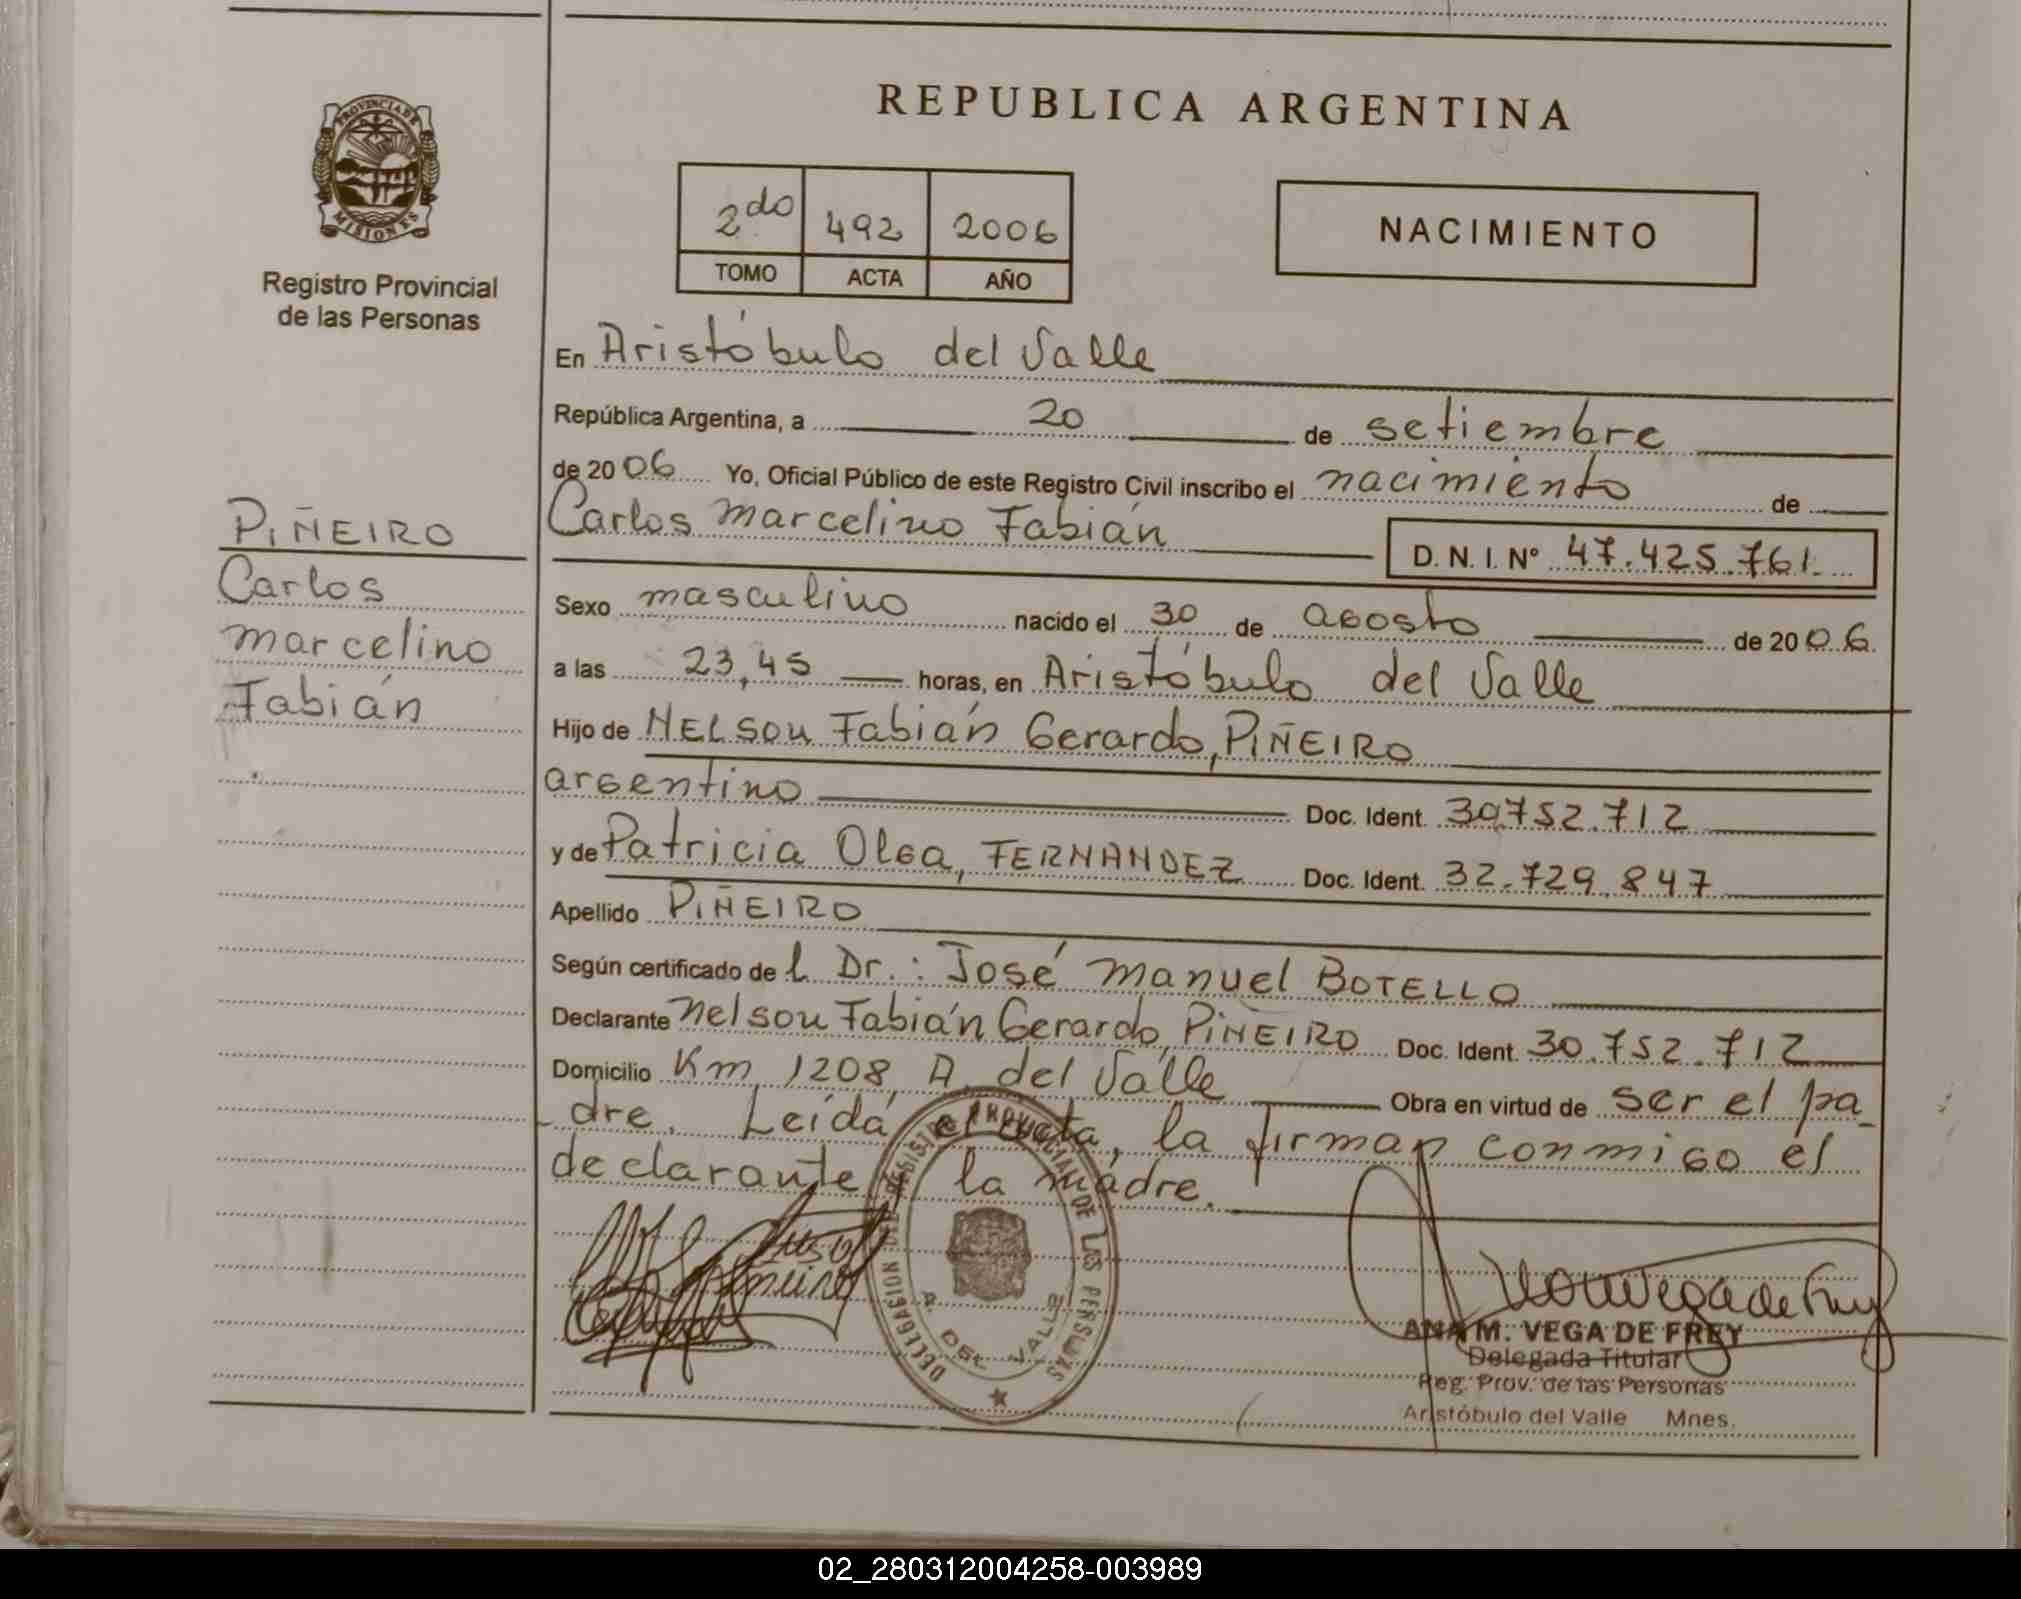 REPUBLICA ARGENTINA
PROVINCIA DE
MISIONES
Registro Provincial
de las Personas
2do 492 2006
TOMO ACTA AÑO
NACIMIENTO
En Aristóbulo del Valle
República Argentina, a 20 de setiembre
de 2006 Yo, Oficial Público de este Registro Civil inscribo el nacimiento de
Carlos Marcelino Fabián D. N. I. Nº 47.425.761.
Sexo masculino nacido el 30 de agosto de 2006.
a las 23,45 horas, en Aristóbulo del Valle
Hijo de NELSON Fabián Gerardo, PIÑEIRO
argentino Doc. Ident. 30.752.712
y de Patricia Olga, FERNANDEZ Doc. Ident. 32.729.847
Apellido PIÑEIRO
Según certificado de l Dr.: José Manuel BOTELLO
Declarante Nelson Fabián Gerardo, PIÑEIRO Doc. Ident. 30.752.712
Domicilio Km 1208, A. del Valle Obra en virtud de ser el pa-
dre. Leída el acta, la firman conmigo el
declarante la madre.
PIÑEIRO
Carlos
Marcelino
Fabián
DELEGACION DEL REGISTRO PROVINCIAL DE LAS PERSONAS
A. DEL VALLE
ANA M. VEGA DE FREY
Delegada Titular
Reg. Prov. de las Personas
Aristóbulo del Valle Mnes.
02_280312004258-003989